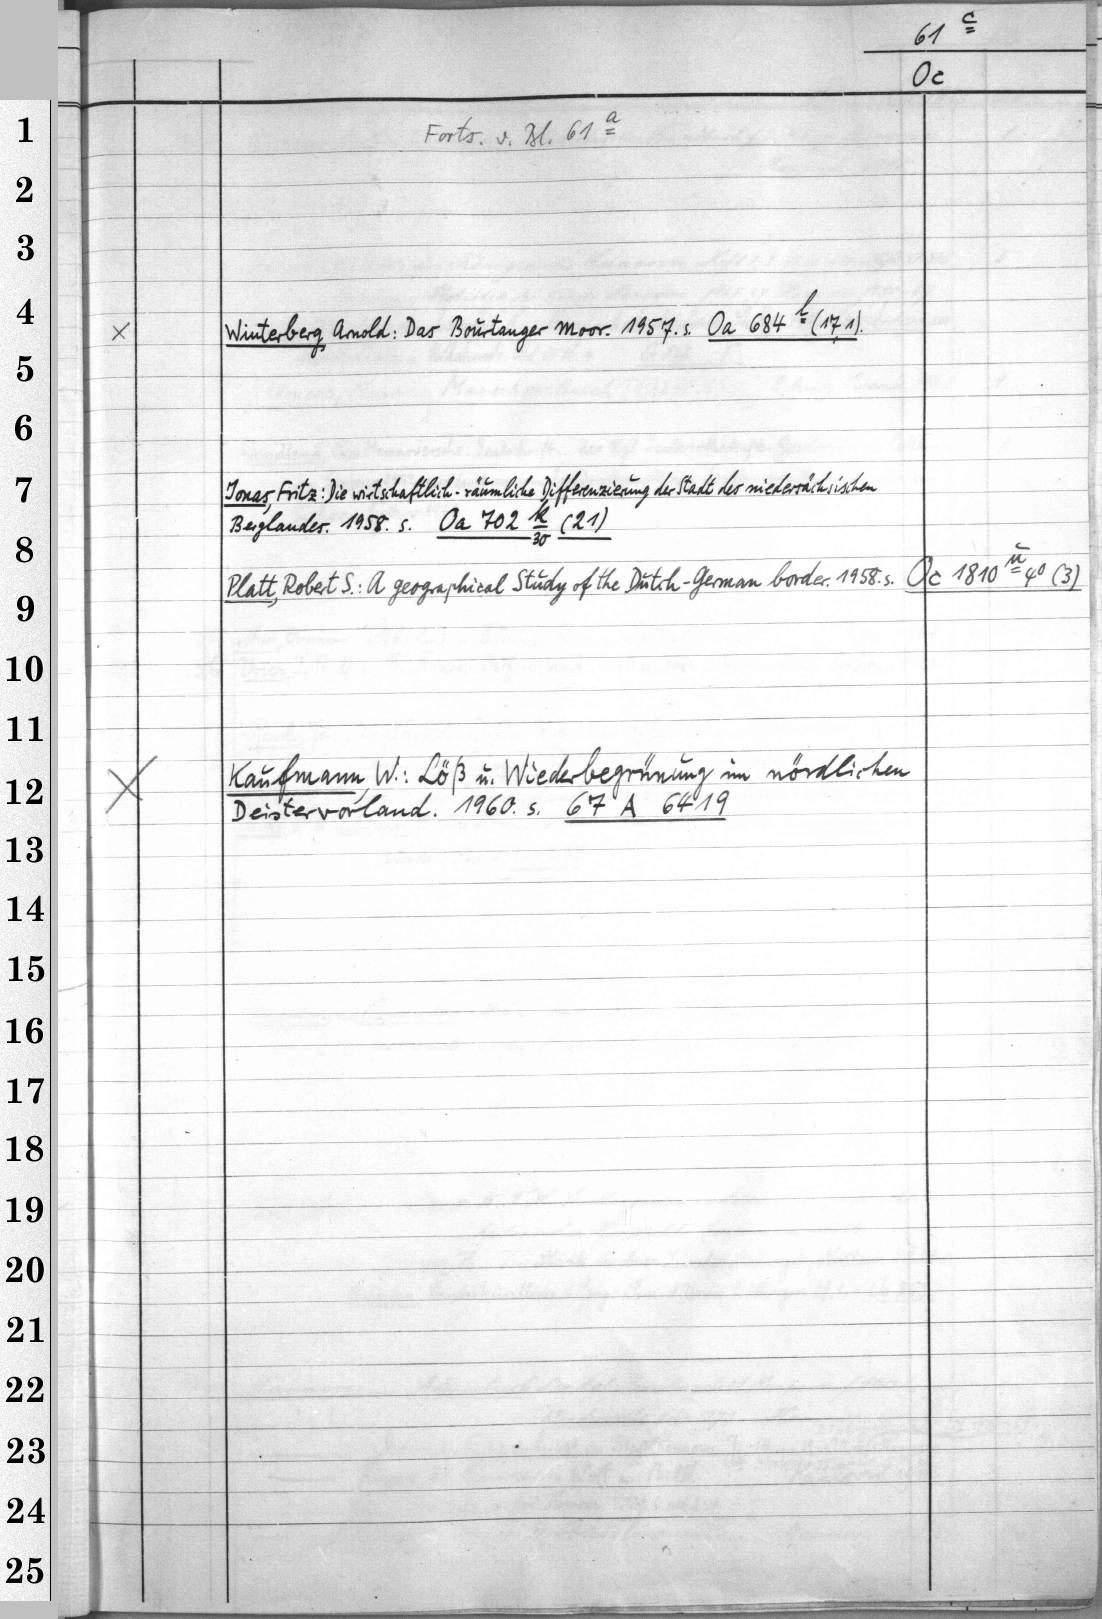 61 c
Oc
1
Forts. v. Bl. 61 a
2
3
4
× Winterberg, Arnold: Das Bourtanger Moor. 1957. s. Oa 684 l (17,1).
5
6
7
Jonas, Fritz: Die wirtschaftlich-räumliche Differenzierung der Stadt des niedersächsischen
Berglandes. 1958. s. Oa 702 k/30 (21)
8
Platt, Robert S.: A geographical Study of the Dutch-German border. 1958. s. Oc 1810 u 4° (3)
9
10
11
12
× Kaufmann, W.: Löß u. Wiederbegrünung im nördlichen
Deistervorland. 1960. s. 67 A 6419
13
14
15
16
17
18
19
20
21
22
23
24
25